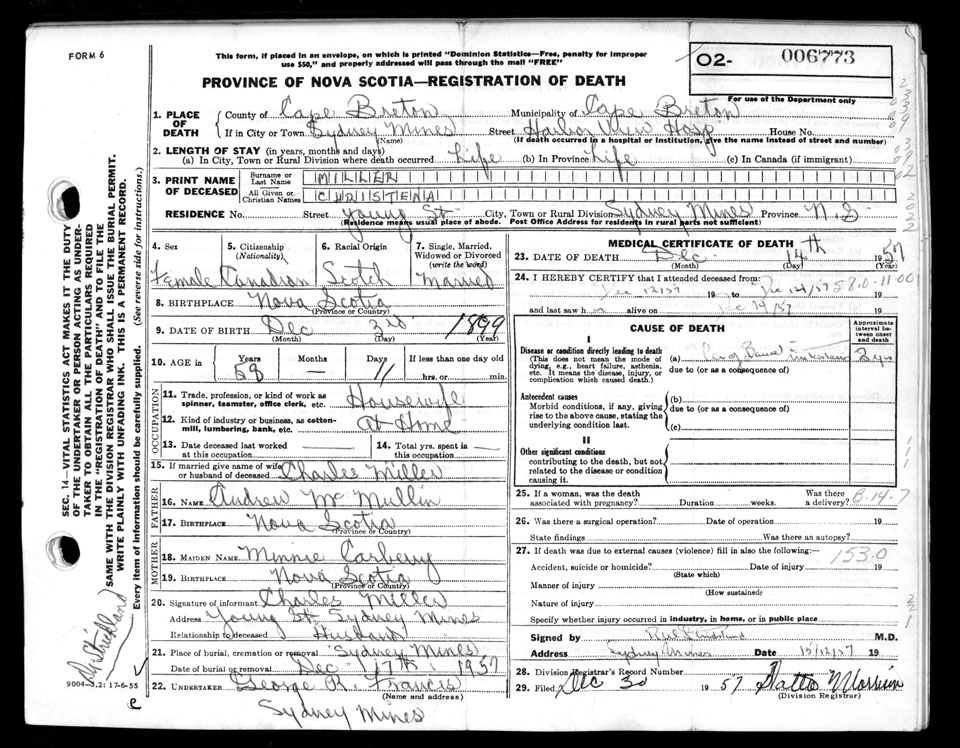 FORM 6
This form, if placed in an envelope, on which is printed "Dominion Statistics—Free, penalty for improper
use $50," and properly addressed will pass through the mail "FREE"
PROVINCE OF NOVA SCOTIA—REGISTRATION OF DEATH
02- 006773
For use of the Department only
1. PLACE OF DEATH
County of Cape Breton Municipality of Cape Breton
If in City or Town Sydney Mines Street Harbor View Hosp House No.
(Name) (If death occurred in a hospital or institution, give the name instead of street and number)
2. LENGTH OF STAY (in years, months and days)
(a) In City, Town or Rural Division where death occurred Life (b) In Province Life (c) In Canada (if immigrant)
3. PRINT NAME OF DECEASED
Surname or Last Name MILLER
All Given or Christian Names CHRISTENA
RESIDENCE No. Street Young St City, Town or Rural Division Sydney Mines Province N.S
(Residence means usual place of abode. Post Office Address for residents in rural parts not sufficient)
4. Sex 5. Citizenship (Nationality) 6. Racial Origin 7. Single, Married, Widowed or Divorced (write the word)
Female Canadian Scotch Married
8. BIRTHPLACE Nova Scotia
(Province or Country)
9. DATE OF BIRTH Dec 3rd 1899
(Month) (Day) (Year)
10. AGE in Years Months Days If less than one day old
58 — 11 hrs. or min.
OCCUPATION
11. Trade, profession, or kind of work as spinner, teamster, office clerk, etc. Housewife
12. Kind of industry or business, as cotton-mill, lumbering, bank, etc. at Home
13. Date deceased last worked at this occupation 14. Total yrs. spent in this occupation
15. If married give name of wife or husband of deceased Charles Miller
FATHER
16. NAME Andrew McMullin
17. BIRTHPLACE Nova Scotia
(Province or Country)
MOTHER
18. MAIDEN NAME Minnie Carberry
19. BIRTHPLACE Nova Scotia
(Province or Country)
20. Signature of informant Charles Miller
Address Young St. Sydney Mines
Relationship to deceased Husband
21. Place of burial, cremation or removal Sydney Mines
Date of burial or removal Dec 17th 1957
22. UNDERTAKER George R. Francis
(Name and address)
Sydney Mines
MEDICAL CERTIFICATE OF DEATH
23. DATE OF DEATH Dec 14th 1957
(Month) (Day) (Year)
24. I HEREBY CERTIFY that I attended deceased from:
Dec 12/57 19 to Dec 14/57 58.0-11-00 19
and last saw h alive on Dec 14/57 19
CAUSE OF DEATH
Approximate interval between onset and death
I
Disease or condition directly leading to death (a)
(This does not mean the mode of dying, e.g., heart failure, asthenia, etc. It means the disease, injury, or complication which caused death.)
due to (or as a consequence of)
2 yrs
Antecedent causes
Morbid conditions, if any, giving rise to the above cause, stating the underlying condition last.
(b)
due to (or as a consequence of)
(c)
II
Other significant conditions
contributing to the death, but not related to the disease or condition causing it.
25. If a woman, was the death associated with pregnancy? Duration weeks. Was there a delivery? B-14-7
26. Was there a surgical operation? Date of operation 19
State findings Was there an autopsy?
27. If death was due to external causes (violence) fill in also the following:—
153.0
Accident, suicide or homicide? Date of injury 19
(State which)
Manner of injury
(How sustained)
Nature of injury
Specify whether injury occurred in industry, in home, or in public place
Signed by M.D.
Address Sydney Mines Date 15/12/57 19
28. Division Registrar's Record Number
29. Filed Dec 30 1957
(Division Registrar)
SEC. 14—VITAL STATISTICS ACT MAKES IT THE DUTY
OF THE UNDERTAKER OR PERSON ACTING AS UNDER-
TAKER TO OBTAIN ALL THE PARTICULARS REQUIRED
IN THE "REGISTRATION OF DEATH" AND TO FILE THE
SAME WITH THE DIVISION REGISTRAR WHO SHALL ISSUE THE BURIAL PERMIT.
WRITE PLAINLY WITH UNFADING INK. THIS IS A PERMANENT RECORD.
Every item of information should be carefully supplied. (See reverse side for instructions.)
Dr Strickland
9004-3,2: 17-6-55